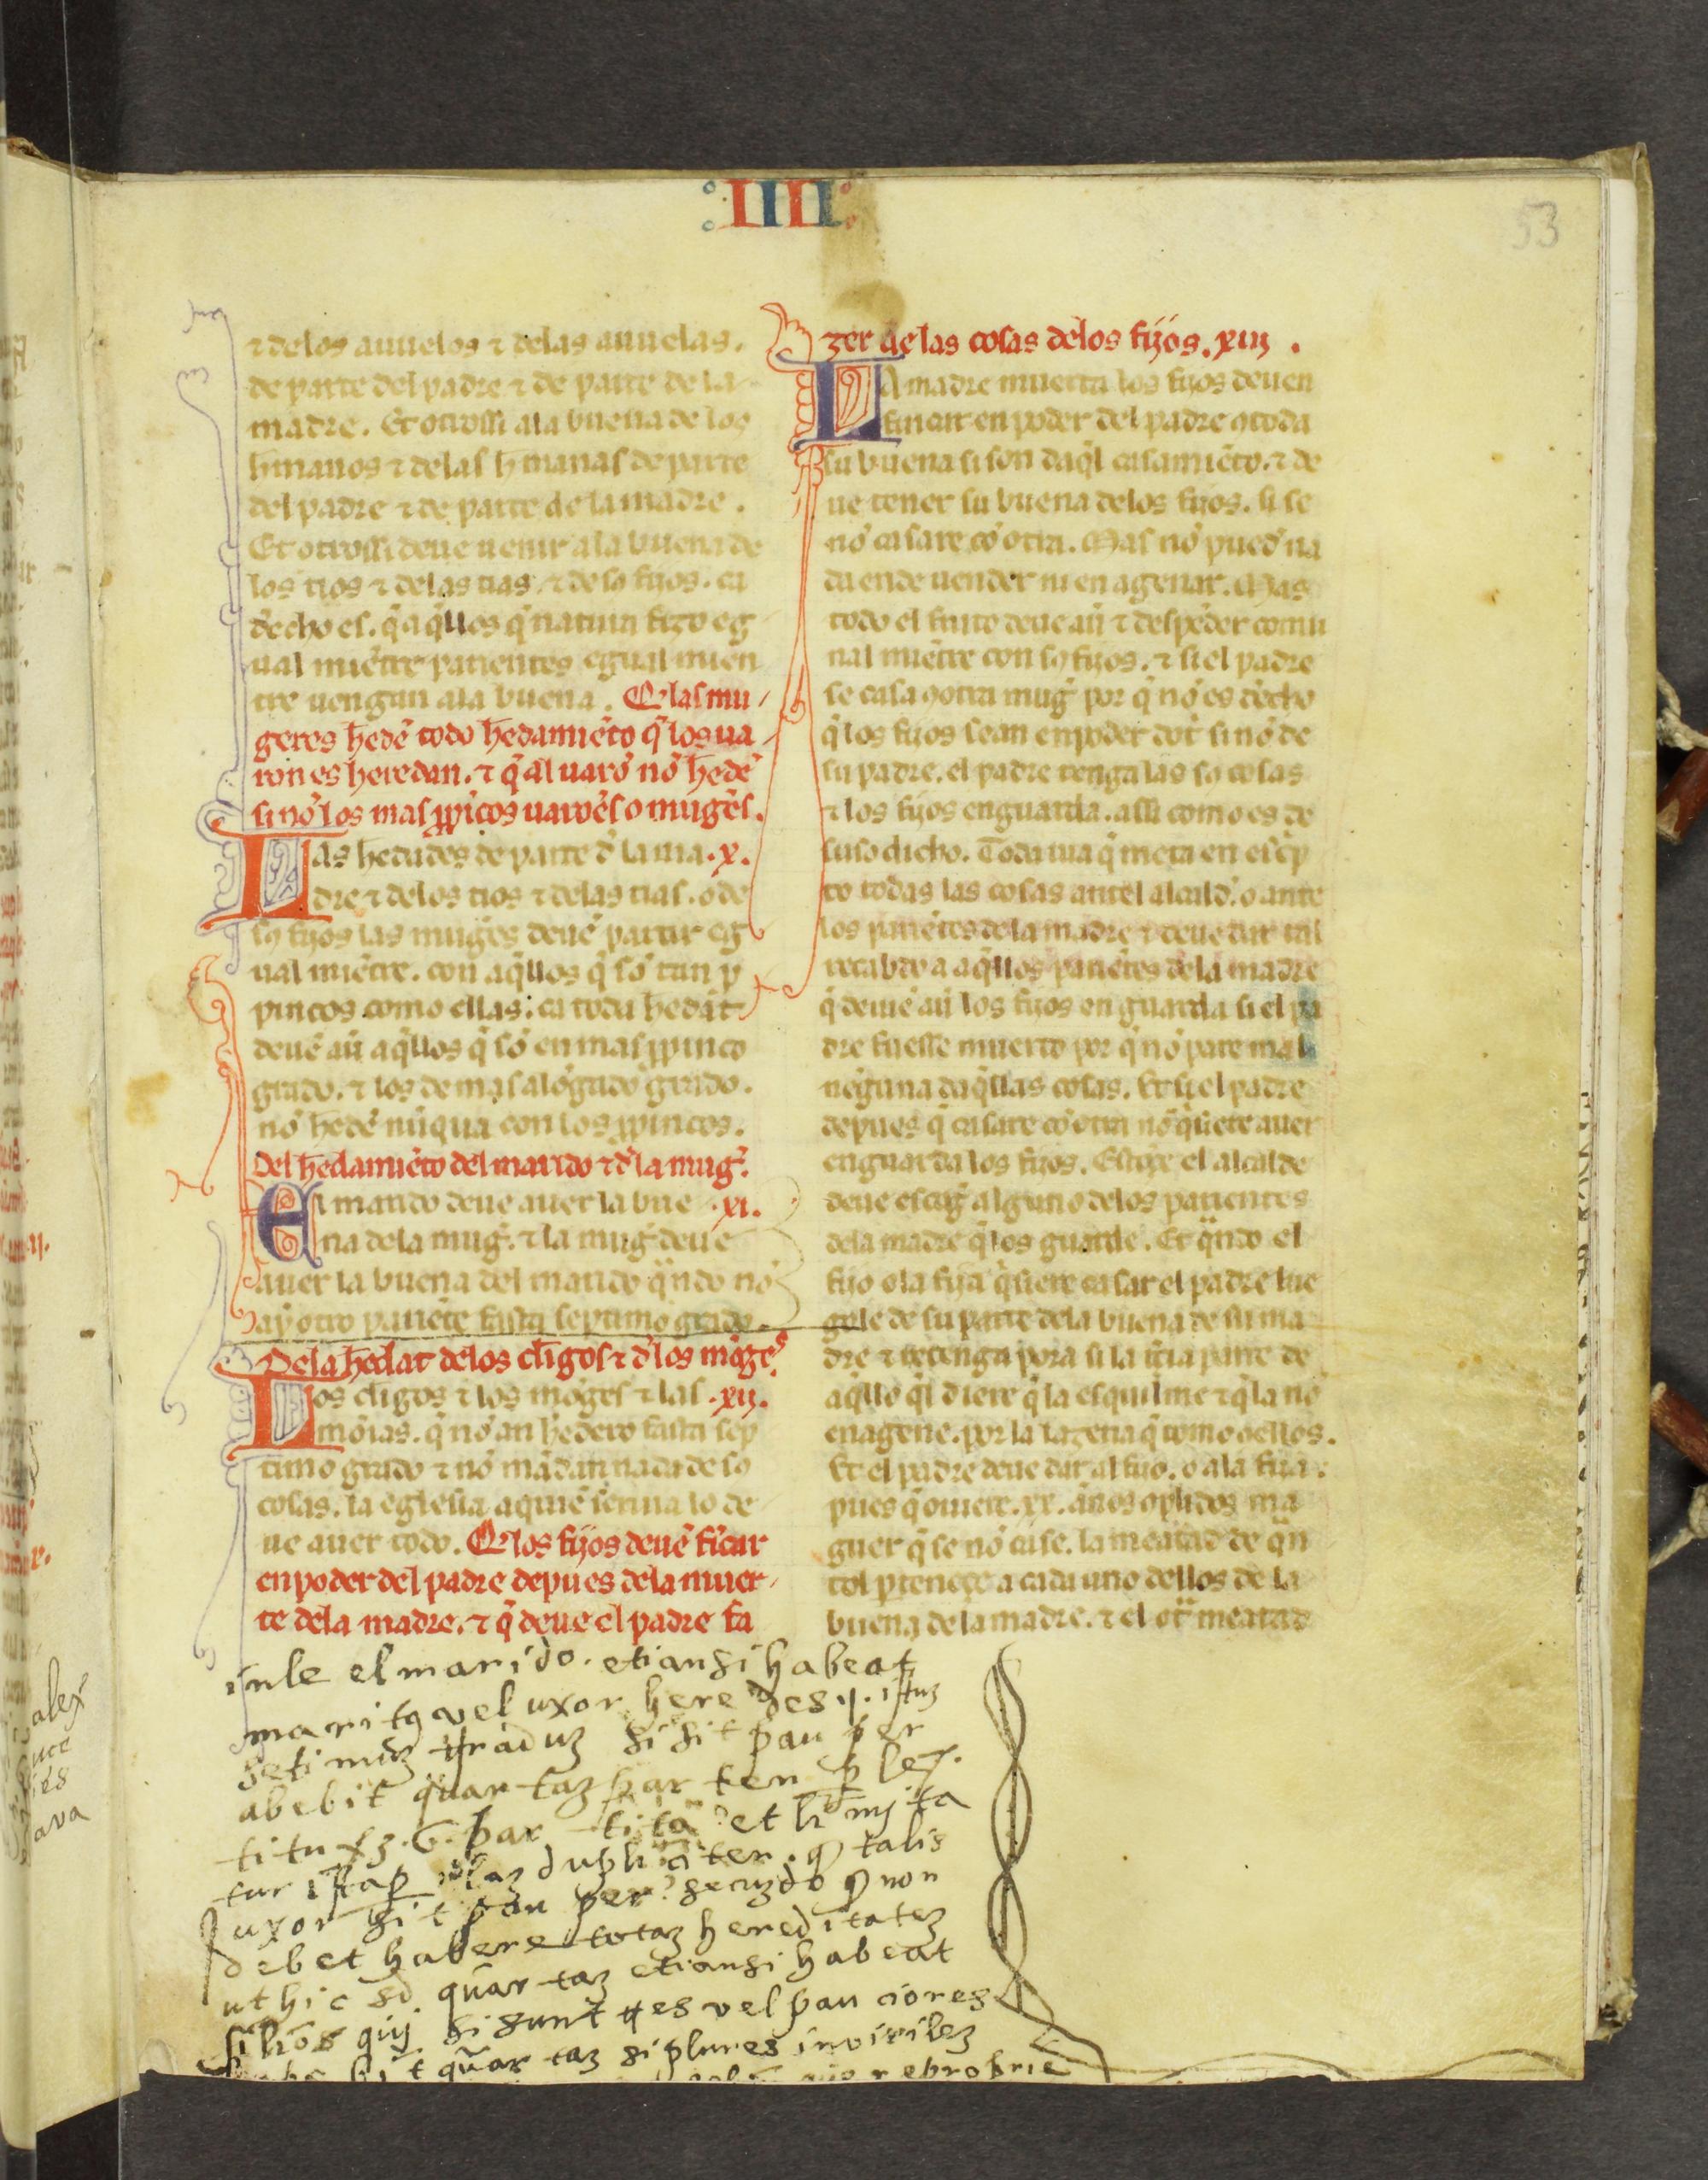 IIII
53
⁊ delos auuelos ⁊ delas auuelas.
de parte del padre ⁊ de parte de la
madre. Et otrossi ala buena de los
h̄manos ⁊ delas h̄manas de parte
del padre ⁊ de parte de la madre.
Et otrossi deue uenir ala buena de
los tios ⁊ delas tias ⁊ de so fijos. ca
d̄echo es. q̄ aq̄llos q̄ natura fizo eg
ual miētre parientes egual mien
tre uengan ala buena. Q̄ las mu
geres h̄edē todo h̄edamiēto q̄ los ua
rones heredan. ⁊ q̄ al uarō nō h̄edē
si nō los mas ꝓpīcos uarōes o mugēs.
Las h̄edades de parte d̄ la ma .x.
dre ⁊ delos tios ⁊ delas tias. o de
so fijos las mugēs deuē partir eg
ual miētre. con aq̄llos q̄ sō tan ꝓ
pincos como ellas; ca toda h̄edat
deuē aū aq̄llos q̄ sō en mas ꝓpinco
grado. ⁊ los demas alōgado grado.
nō h̄edē nūqua con los ꝓpincos.
Del h̄edamiēto del marido ⁊ d̄ la muḡ.
El marido deue auer la bue .xi.
na dela muḡ. ⁊ la muḡ deue
auer la buena del marido q̄ndo nō
ay otro pariēte fasta septimo grado.
De la h̄edat delos cl̄igos ⁊ d̄ los mōges
Los cl̄igos ⁊ los mōges ⁊ las .xij.
mōias. q̄ nō an h̄edero fasta sep
timo grado ⁊ nō mādan nada de so
cosas. la eglesia aquiē siruia lo de
ue auer todo. Q̄ los fijos deuē ficar
en poder del padre depues dela muer
te dela madre. ⁊ q̄ deue el padre fa
zer de las cosas delos fijos. xiij.
La madre muerta los fijos deuen
fincar en poder del padre ꝯ toda
su buena si son daq̄l casamiēto. ⁊ de
ue tener su buena delos fijos. si se
nō casare cō otra. Mas nō puedē na
da ende uender ni enagenar. Mas
todo el fruto deue aū ⁊ despēder comu
nal miētre con so fijos. ⁊ si el padre
se casa ꝯ otra muḡ por q̄ nō es d̄echo
q̄ los fijos sean en poder dot̄ si nō de
su padre. el padre tenga las so cosas
⁊ los fijos en guarda. assi como es de
suso dicho. Toda uia q̄ meta en esc̄p
to todas las cosas antel alcald̄. o ante
los pariētes dela madre ⁊ deue dar tal
recabdo a aq̄llos pariētes dela madre
q̄ deuē aū los fijos en guarda si el pa
dre fuesse muerto por q̄ nō pare mal
neguna daq̄llas cosas. Et si el padre
depues q̄ casare cō otra nō q̄siere auer
en guarda los fijos. Estōçe el alcalde
deue escoḡ alguno delos parientes
dela madre q̄ los guarde. Et q̄ndo el
fijo o la fija q̄siere casar el padre lue
gole de su parte dela buena de su ma
dre ⁊ retenga pora si la t̄cia parte de
aq̄llo q̄l diere q̄ la esquilme ⁊ q̄ la nō
enagene. por la lazeria q̄ tomo ꝯ ellos.
Et el padre deue dar al fijo. o ala fija.
pues q̄ ouiere .xx. años ꝯplidos ma
guer q̄ se nō case. la meatad de q̄n
tol ꝑteneçe a cada uno dellos de la
buena de la madre. ⁊ el ot̄ meatad
el marido. etiansi habeat
maritꝯ vel uxor heredes
setimuz graduz si sit pauper
abebit quartaz parten
uxor sit pauper secuzdo non
debet habere totaz hereditatez
ut hic sd quartaz etiansi habeat
filios si sunt tres vel pauciores
quartaz si plures